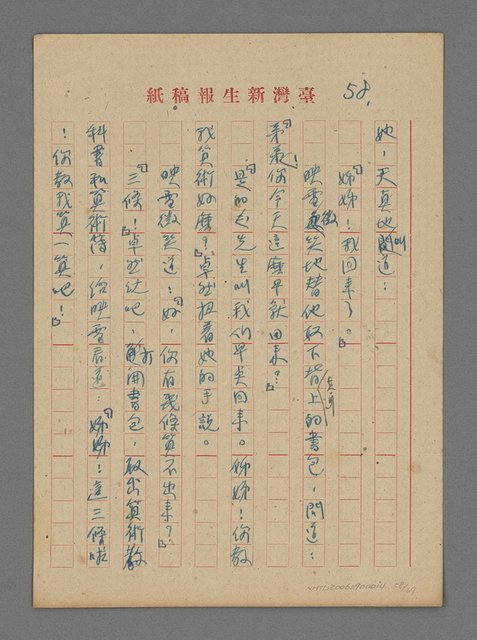 臺灣新生報稿紙
58.
她,天真地叫道:
「姊姊!我回來了。」
映雪微笑地替他取下背上的書包,問道:
「弟弟!你今天這麼早就回來?」
「是的,先生叫我们早点回來。姊姊!你教
我算術好麼?」卓然扭着她的手說。
映雪微笑道:「好,你有幾條算不出來?」
「三條!」卓然说吧,打開書包,取出算術教
科書和算術簿,給映雪看道:「姊姊!這三條啦
!你教我算一算吧!」